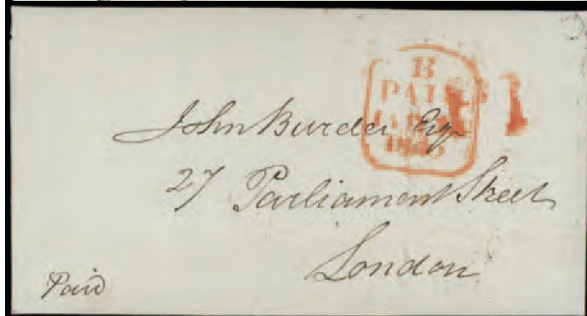 B
PAID
John Burder Esqr
27 Parliament Street
London
Paid